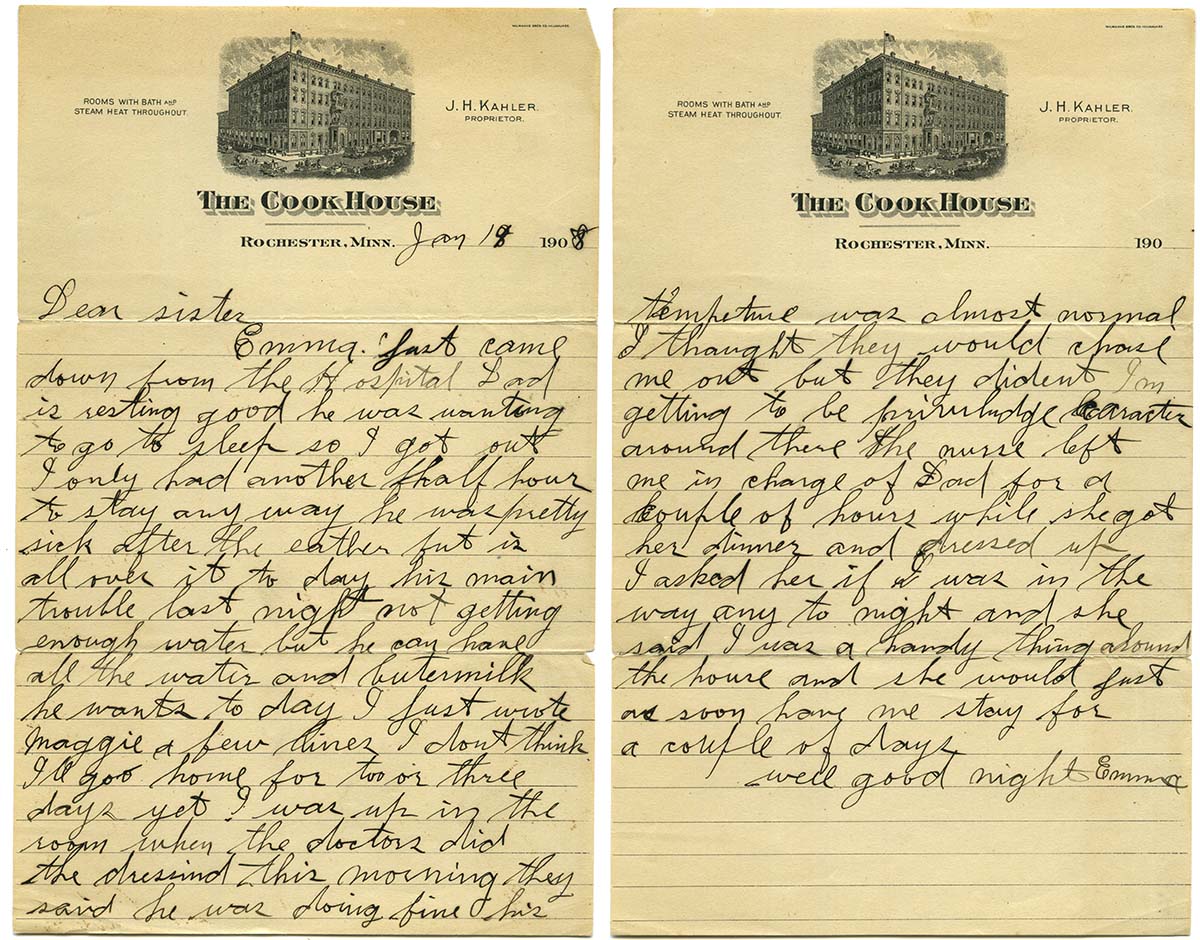 MILWAUKEE BROS. CO. MILWAUKEE.
ROOMS WITH BATH AND
STEAM HEAT THROUGHOUT.
J. H. KAHLER.
PROPRIETOR.
THE COOK HOUSE
ROCHESTER, MINN. Jan 18 1908
Dear sister
Emma. just came
down from the Hospital Dad
is resting good he was wanting
to go to sleep so I got out
I only had another half hour
to stay any way he was pretty
sick after the eather but is
all over it to day his main
trouble last night not getting
enough water but he can have
all the water and butermilk
he wants to day I just wrote
Maggie a few lines I dont think
I'll goo home for two or three
days yet I was up in the
room when the doctors did
the dressind this morning they
said he was doing fine his
ROOMS WITH BATH AND
STEAM HEAT THROUGHOUT.
J. H. KAHLER.
PROPRIETOR.
THE COOK HOUSE
ROCHESTER, MINN. 190
tempeture was almost normal
I thought they would chase
me out but they dident I'm
getting to be priruludge caracter
around there the nurse left
me in charge of Dad for a
couple of hours while she got
her dinner and dressed up
I asked her if I was in the
way any to night and she
said I was a handy thing around
the house and she would just
as soon have me stay for
a couple of days
well good night Emma